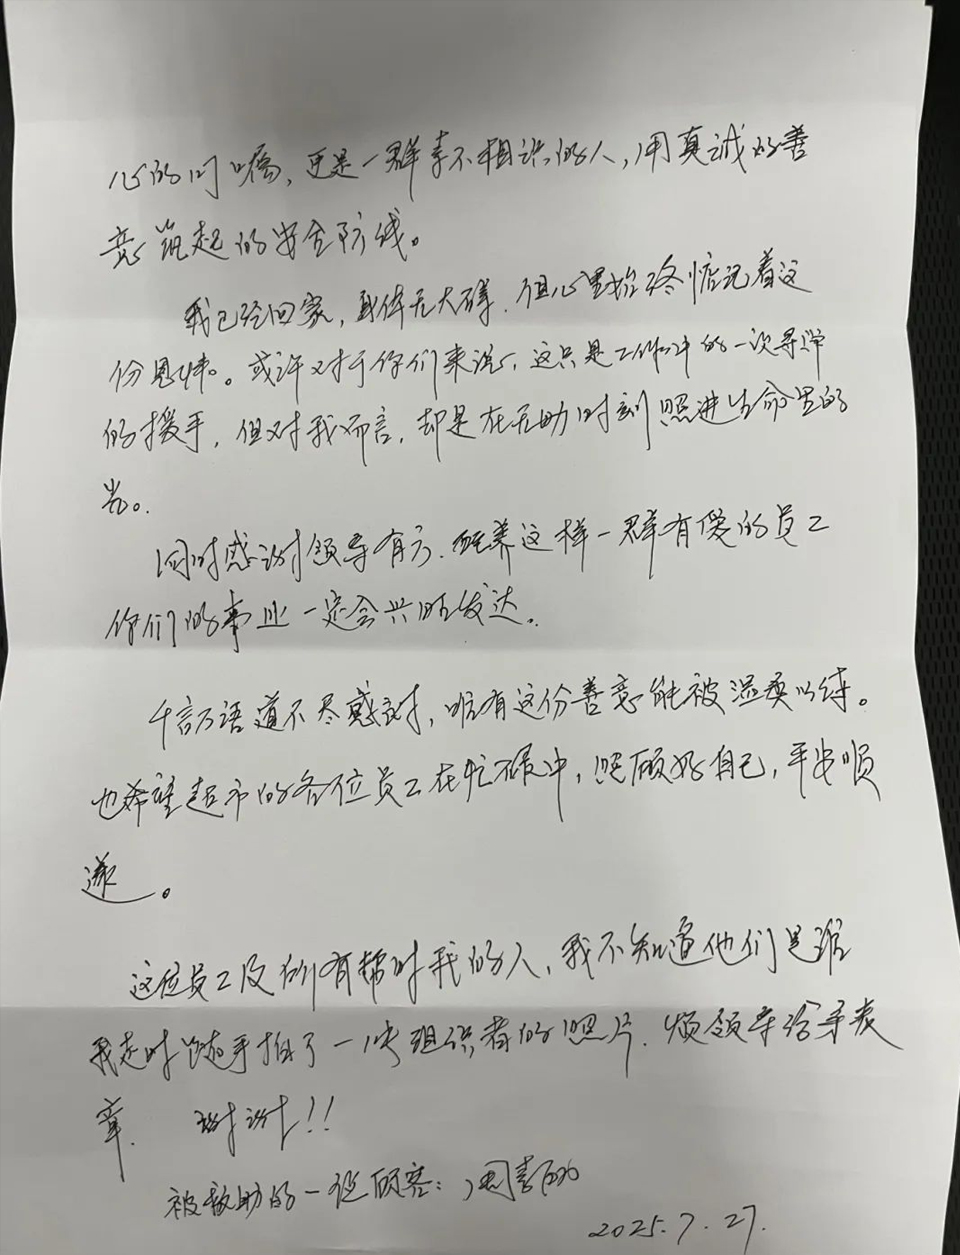 心的叮嘱，更是一群素不相识的人，用真诚的善
意筑起的安全防线。
我已经回家，身体无大碍，但心里始终惦记着这
份恩情。或许对于你们来说，这只是工作中的一次寻常
的援手，但对我而言，却是在无助时刻照进生命里的
光。
同时感谢领导有方，培养这样一群有爱的员工
你们的事业一定会兴旺发达。
千言万语道不尽感谢，唯有这份善意能被温柔以待。
也希望超市的各位员工在忙碌中，照顾好自己，平安顺
遂。
这位员工及所有帮助我的人，我不知道他们是谁
我走时随手拍了一张组织者的照片，烦领导给予表
章。 谢谢!!
被救助的一位顾客：周
2025.7.27.